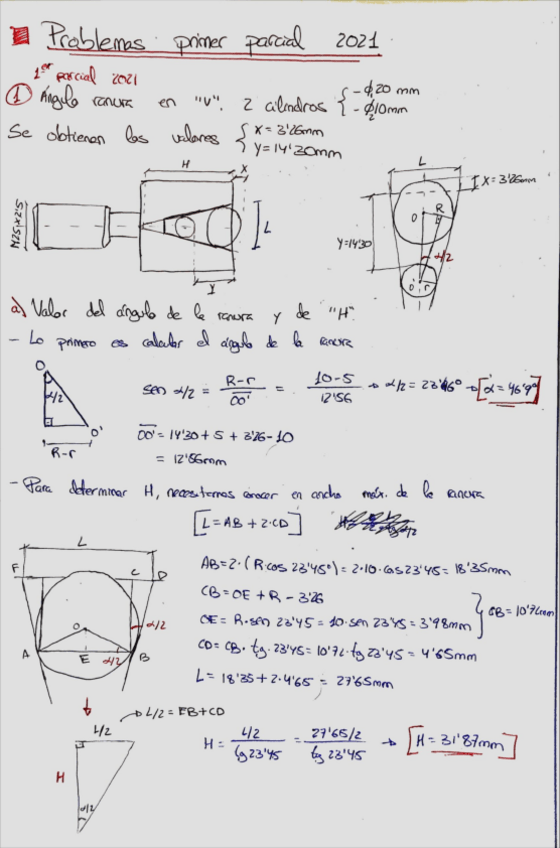 Problemas primer parcial 2021
1er parcial 2021
① Ángulo ranura en "V". 2 cilindros { - ϕ₁20 mm
- ϕ₂10mm
Se obtienen los valores { X = 3'26mm
Y = 14'30mm
H
X
M25x2'5
L
Y
L
X = 3'26mm
R
O
Y=14'30
α/2
O'
r
a) Valor del ángulo de la ranura y de "H"
- Lo primero es calcular el ángulo de la ranura
O
α/2
O'
R-r
sen α/2 = R-r / OO' = 10-5 / 12'56 → α/2 = 23'46° → [α = 46'9°]
OO' = 14'30 + 5 + 3'26 - 10
= 12'56mm
- Para determinar H, necesitamos conocer en ancho máx. de la ranura
[L = AB + 2·CD]
L
F
C
D
O
α/2
A
E
α/2
B
AB = 2·(R·cos 23'45°) = 2·10·cos 23'45 = 18'35mm
CB = OE + R - 3'26
OE = R·sen 23'45 = 10·sen 23'45 = 3'98mm } CB = 10'72mm
CD = CB·tg 23'45 = 10'72·tg 23'45 = 4'65mm
L = 18'35 + 2·4'65 = 27'65mm
→ L/2 = EB + CD
L/2
H
α/2
H = L/2 / tg 23'45 = 27'65/2 / tg 23'45 → [H = 31'87mm]